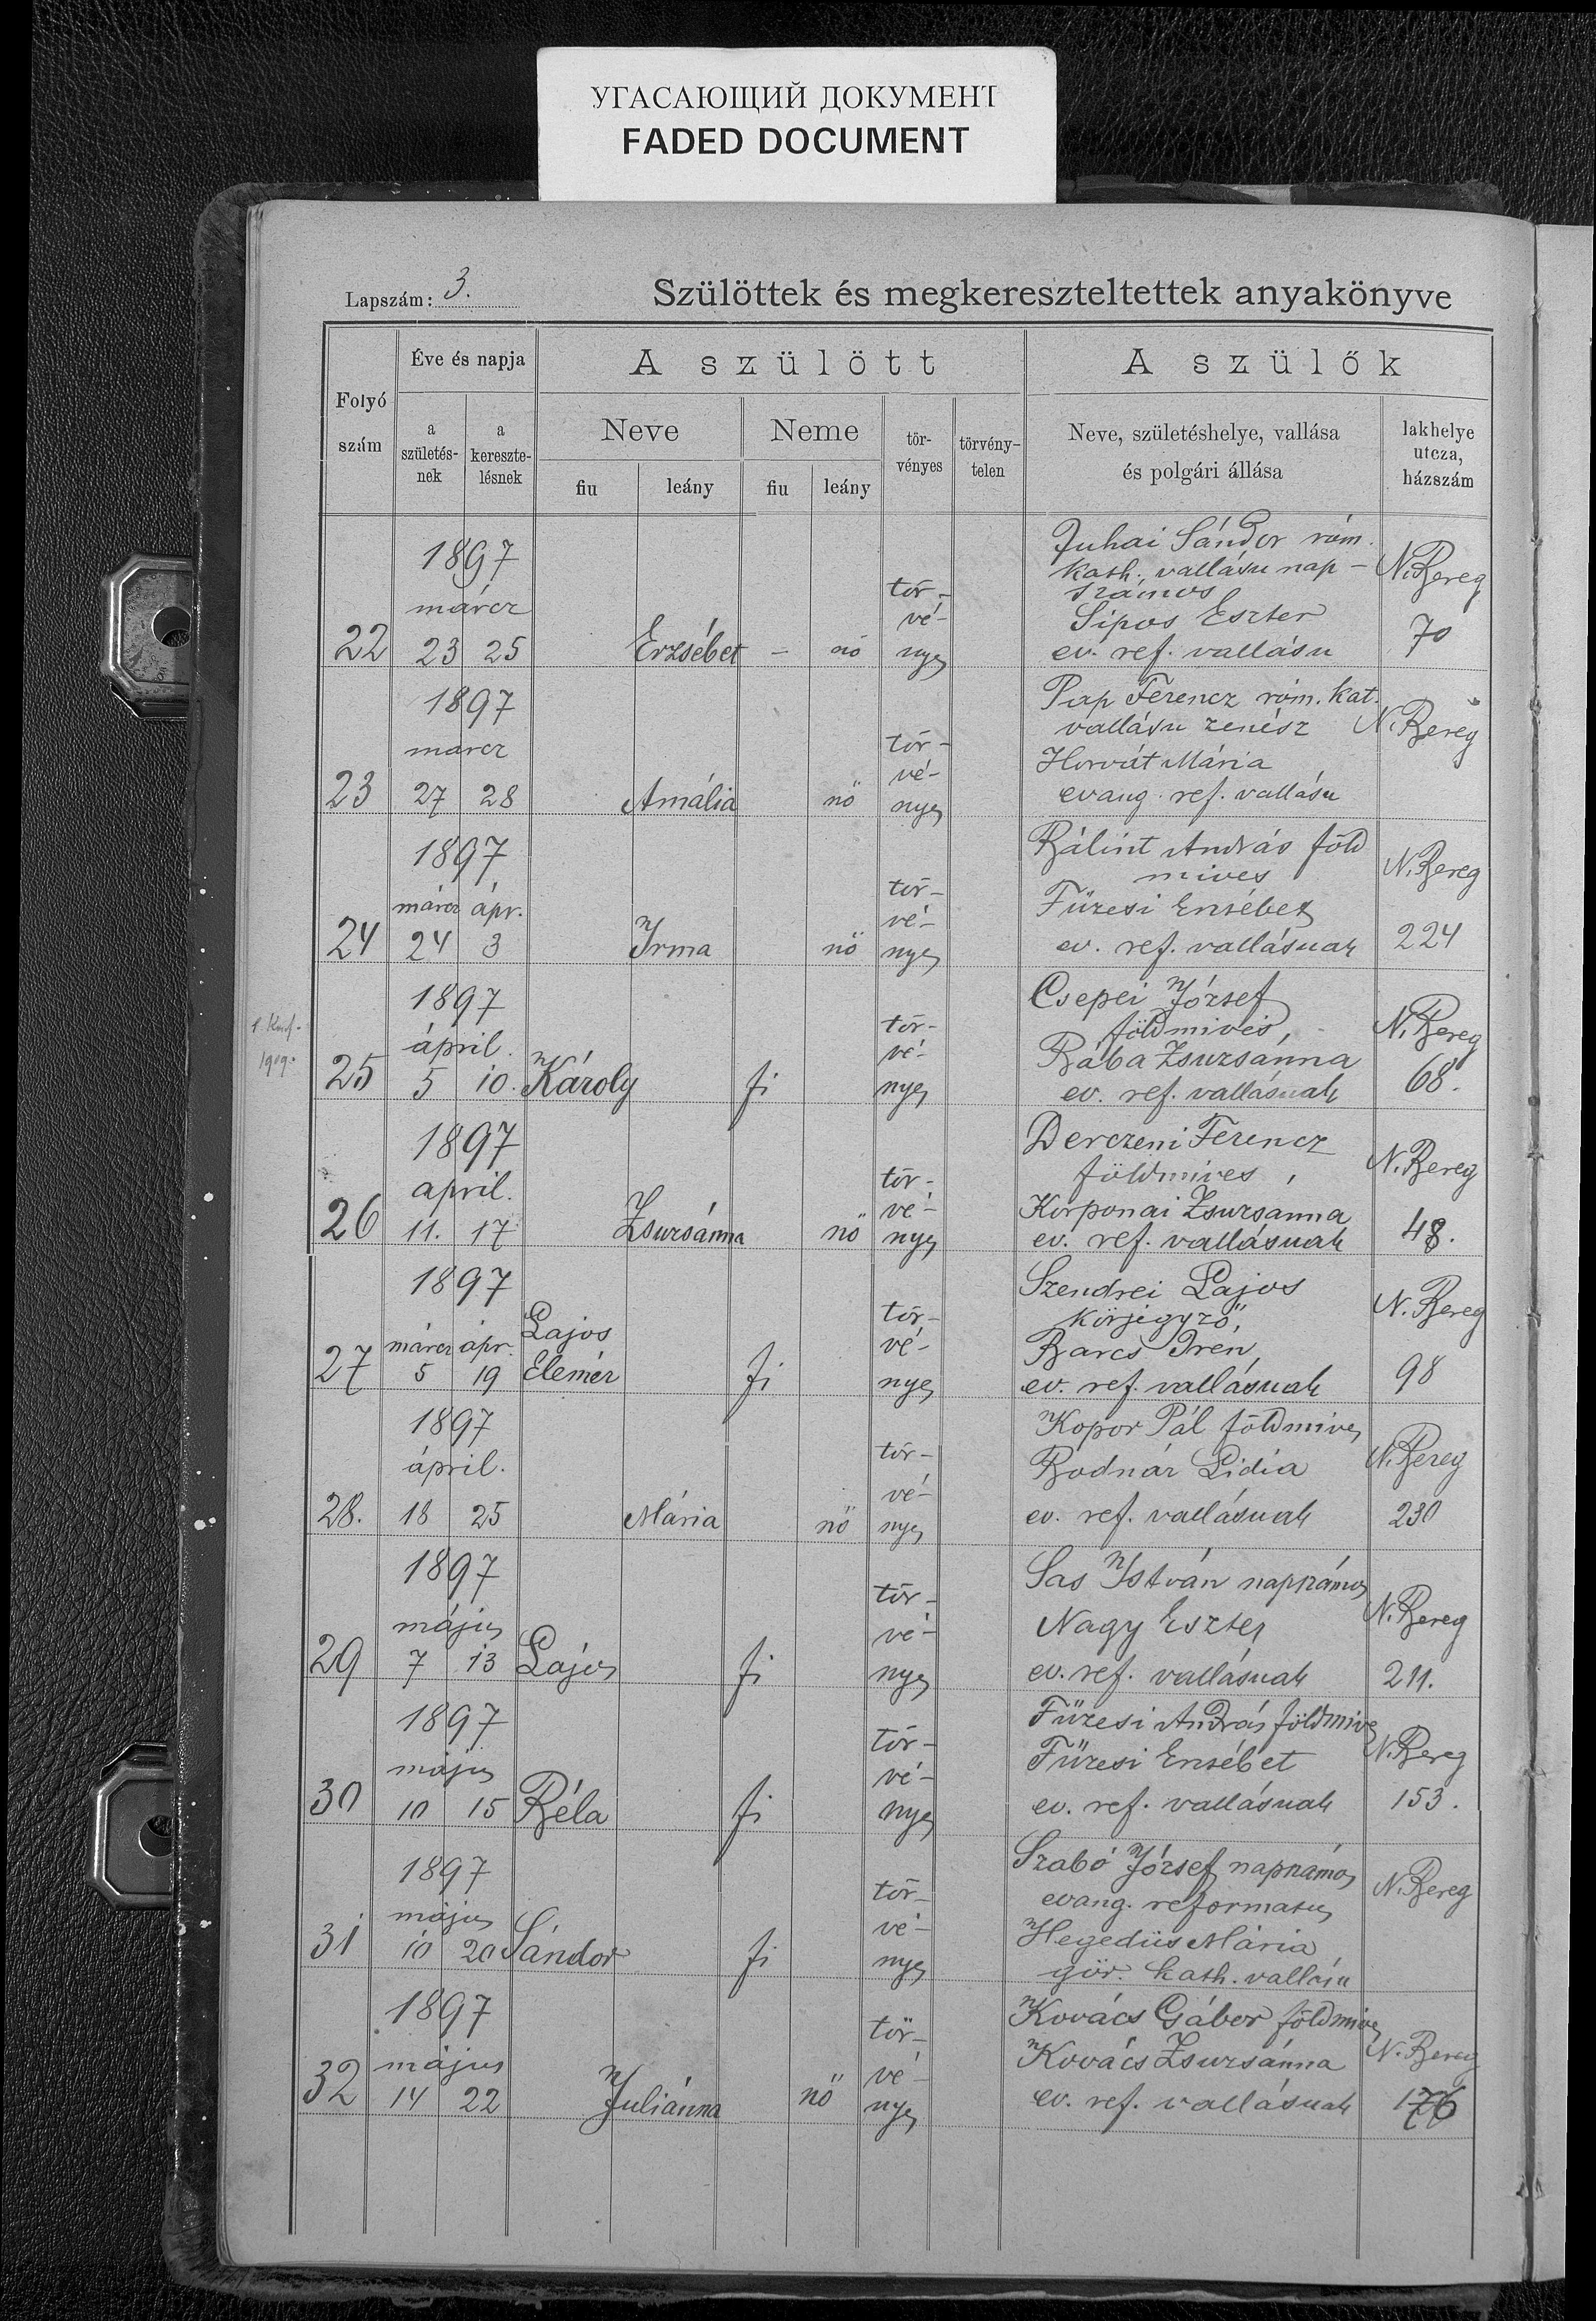 УГАСАЮЩИЙ ДОКУМЕНТ
FADED DOCUMENT
Lapszám: 3.
Szülöttek és megkereszteltettek anyakönyve
Folyó szám
Éve és napja
a születés-nek
a kereszte-lésnek
A szülött
Neve
fiu
leány
Neme
fiu
leány
tör-vényes
törvény-telen
A szülők
Neve, születéshelye, vallása
és polgári állása
lakhelye
utcza,
házszám
1897
márcz
22 23 25 Erzsébet – nö
tör-
vé-
nyes
Juhai Sándor róm.
kath. vallásu nap-
számos
Sipos Eszter
ev. ref. vallásu
N. Bereg
70
1897
marcz
23 27 28 Amália nö
tör-
vé-
nyes
Pap Ferencz róm. kat.
vallásu zenész
Horvát Mária
evang. ref. vallásu
N. Bereg
1897
márcz ápr.
24 24 3 Irma nö
tör-
vé-
nyes
Bálint András föld
mives
Füzesi Erzsébet
ev. ref. vallásuak
N. Bereg
224
1909.
1897
ápril.
25 5 10. Károly fi
tör-
vé-
nyes
Csepei József
földmives,
Bába Zsuzsánna
ev. ref. vallásuak
N. Bereg
68.
1897
april.
26 11. 17 Zsuzsánna nö
tör-
vé-
nyes
Derczeni Ferencz
földmives,
Korponai Zsuzsanna
ev. ref. vallásuak
N. Bereg
48.
1897
márcz ápr.
27 5 19 Lajos
Elemér fi
tör-
vé-
nyes
Szendrei Lajos
körjegyző,
Barcs Irén
ev. ref. vallásuak
N. Bereg
98
1897
ápril.
28. 18 25 Mária nö
tör-
vé-
nyes
Kopor Pál földmives
Bodnár Lidia
ev. ref. vallásuak
N. Bereg
230
1897
május
29 7 13 Lajos fi
tör-
vé-
nyes
Sas István napszámos
Nagy Eszter
ev. ref. vallásuak
N. Bereg
211.
1897
május
30 10 15 Béla fi
tör-
vé-
nyes
Füzesi András földmives
Füzesi Erzsébet
ev. ref. vallásuak
N. Bereg
153.
1897
május
31 10 20 Sándor fi
tör-
vé-
nyes
Szabó József napszámos
evang. reformatus
Hegedüs Mária
gör. kath. vallásu
N. Bereg
1897
május
32 14 22 Juliánna nö
tör-
vé-
nyes
Kovács Gábor földmives
Kovács Zsuzsánna
ev. ref. vallásuak
N. Bereg
176